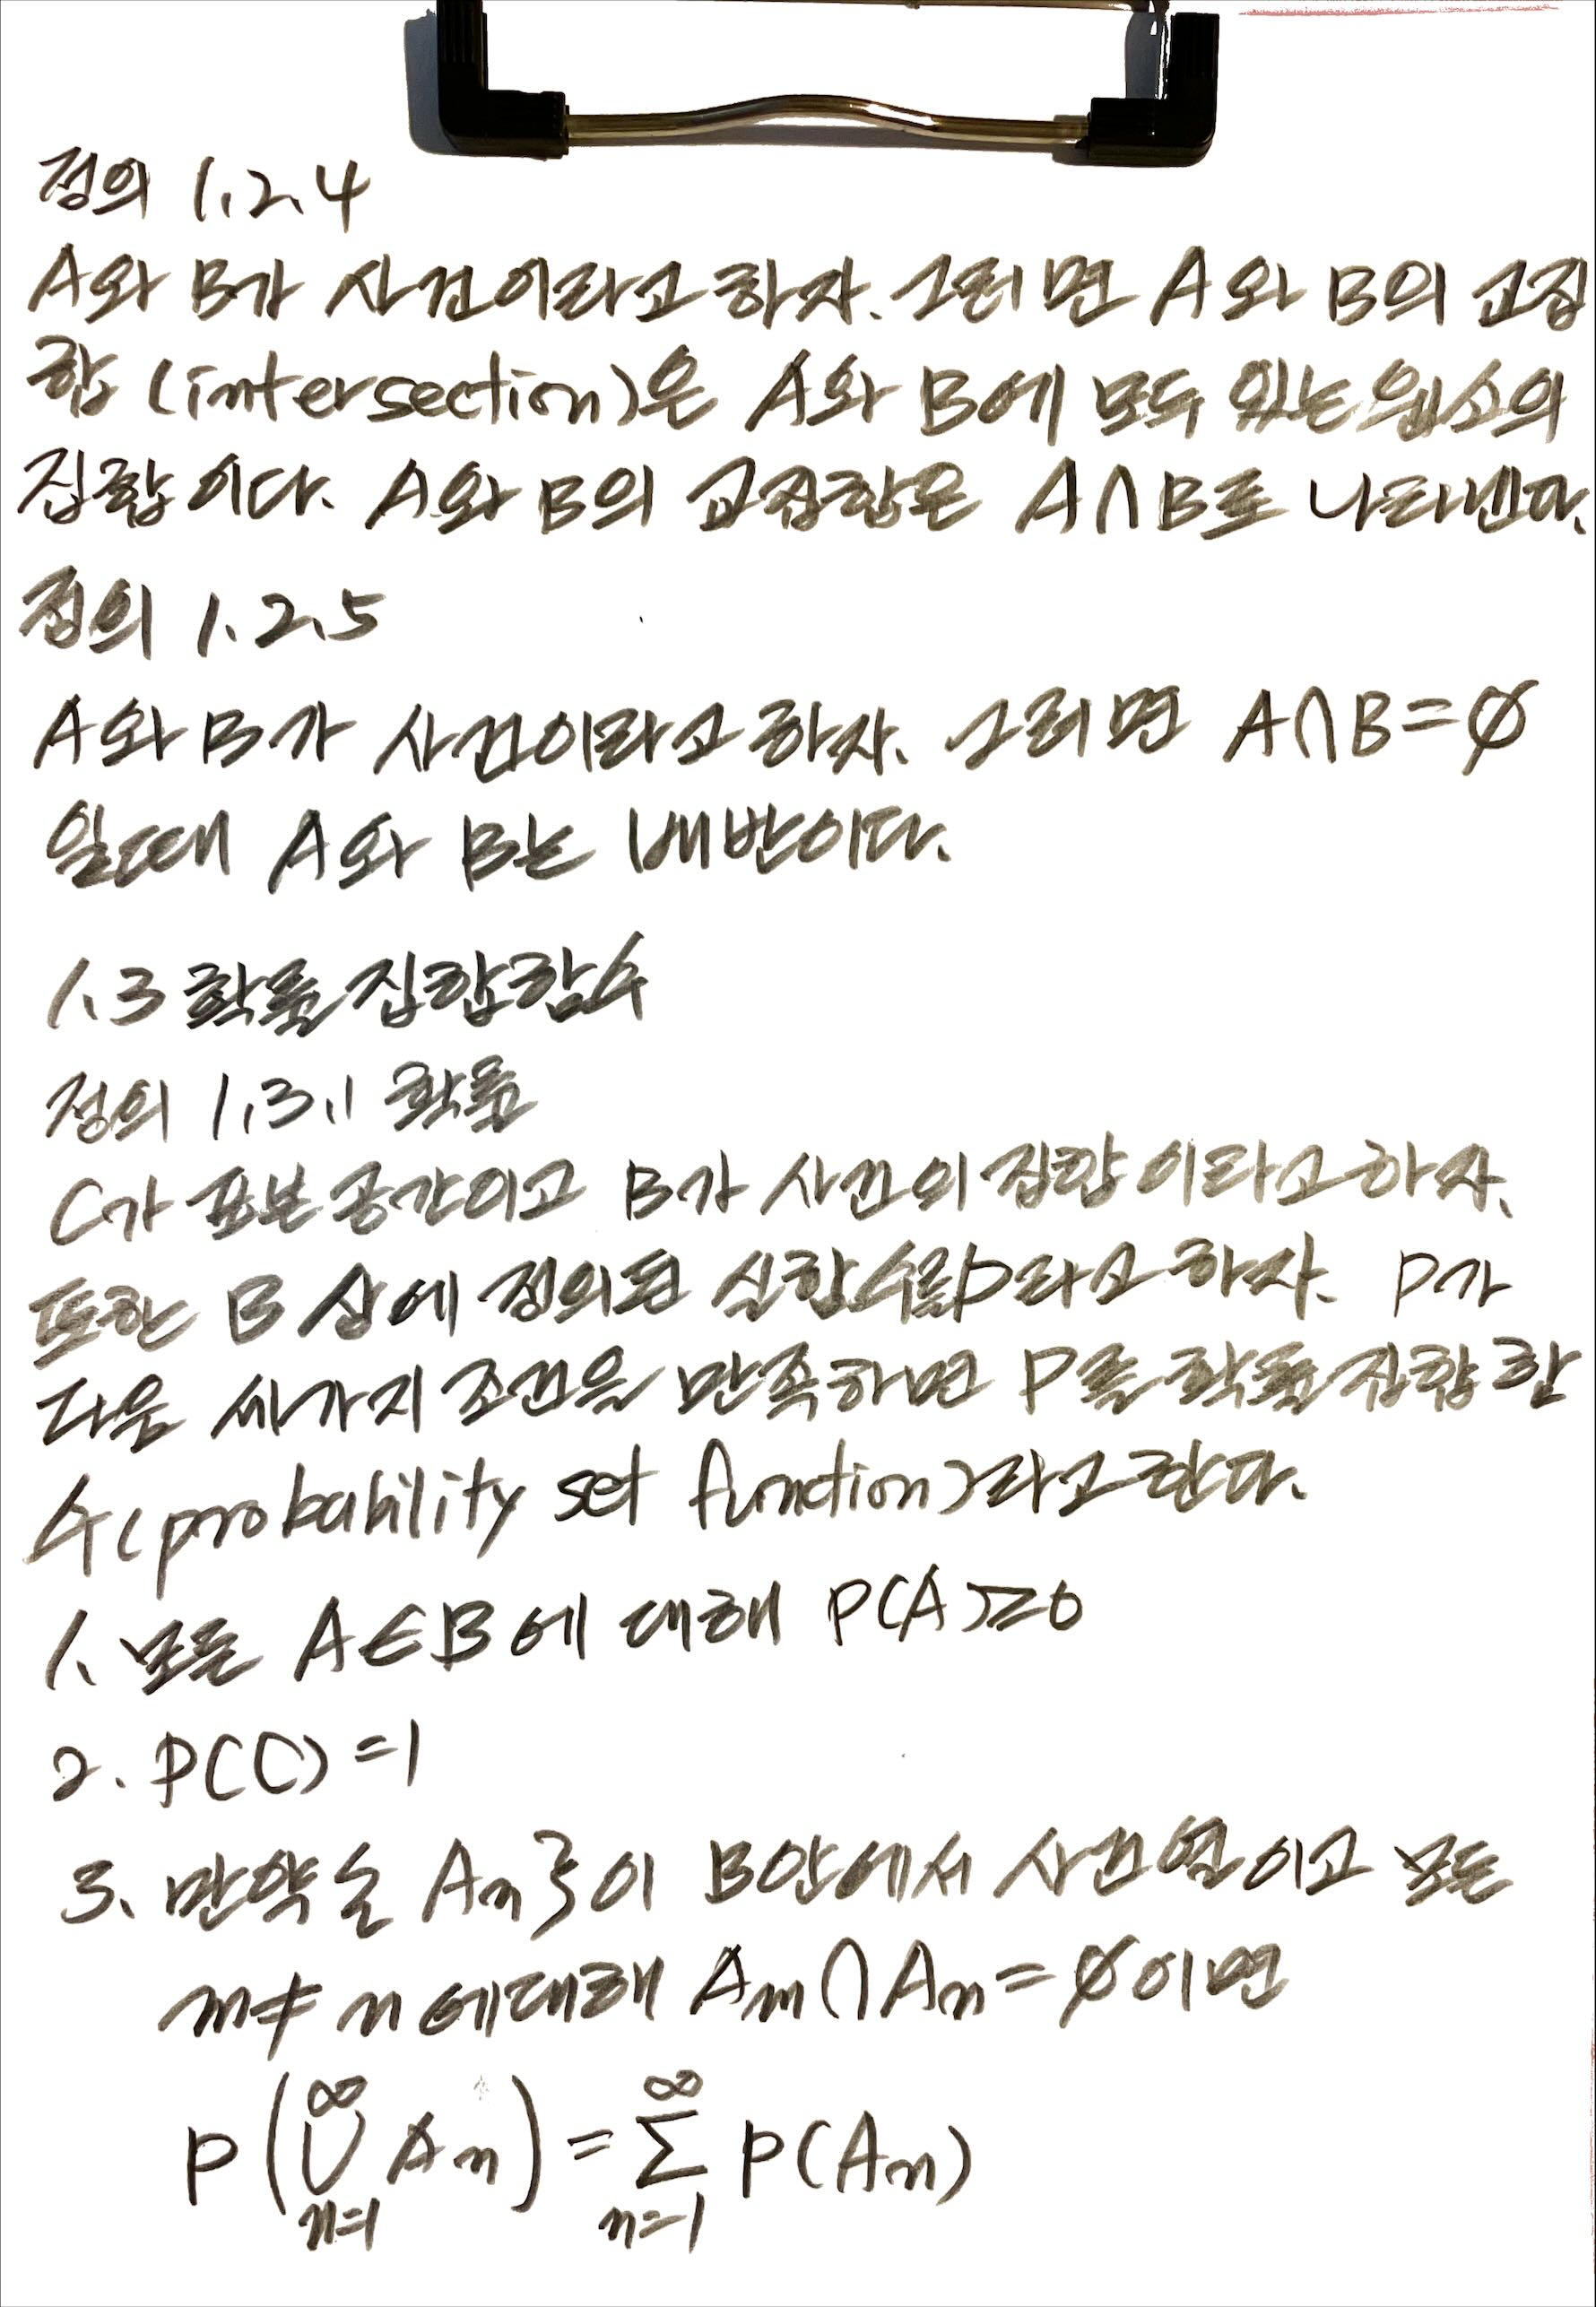 정의 1.2.4
A와 B가 사건이라고 하자. 그러면 A와 B의 교집
합 (intersection)은 A와 B에 모두 있는 원소의
집합이다. A와 B의 교집합은 A∩B로 나타낸다.
정의 1.2.5
A와 B가 사건이라고 하자. 그러면 A∩B=∅
일때 A와 B는 배반이다.
1.3 확률 집합함수
정의 1.3.1 확률
C가 표본공간이고 B가 사건의 집합이라고 하자.
또한 B 상에 정의된 실함수를 P라고 하자. P가
다음 세가지 조건을 만족하면 P를 확률 집합 함
수(probability set function)라고 한다.
1. 모든 A∈B에 대해 P(A)≥0
2. P(C)=1
3. 만약 An}이 B안에서 사건열이고 모든
m≠n에대해 Am∩An=∅이면
P(∪_{n=1}^{∞} An)=∑_{n=1}^{∞} P(An)